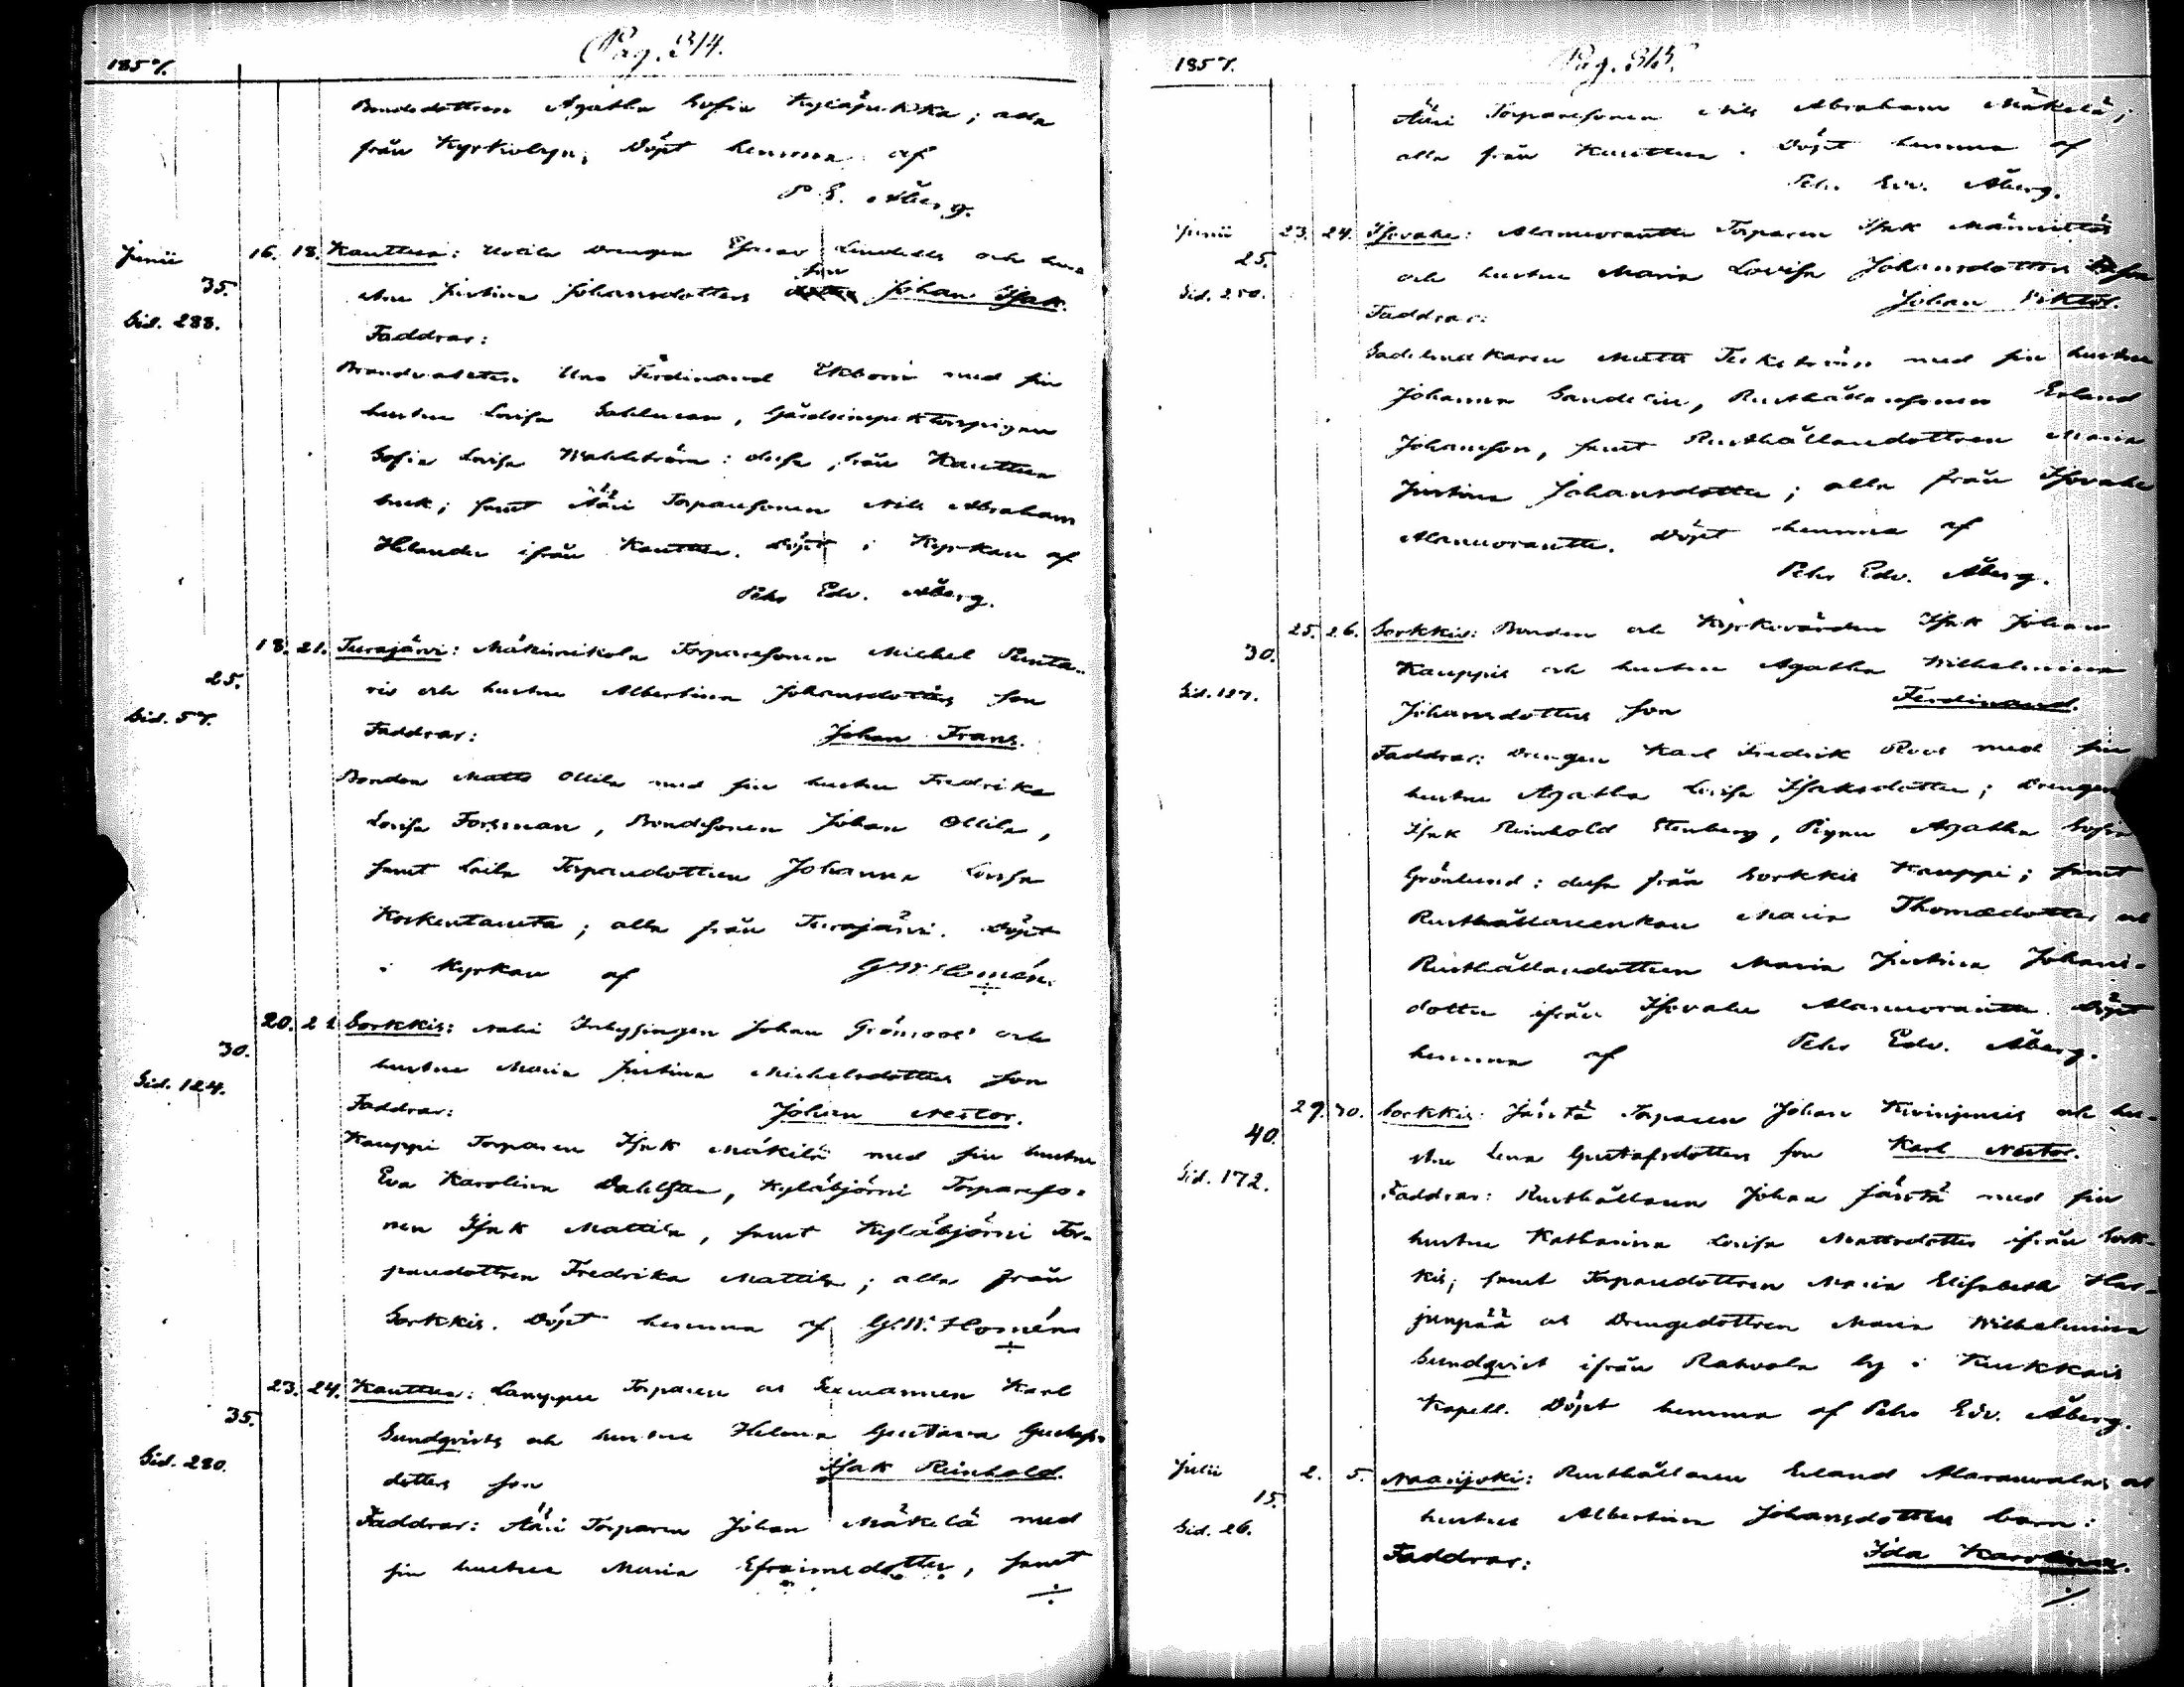 1857.
Pag. 314.
Bondedottren Agatha Sofia Kyläpekka; alla
från Kyrkobyn, Döpt hemma af
P. E. Åberg.
Junii 16. 18. Kauttua: Uotila Drengen Lindells och hu-
35. stru Justina Johansdotters son Johan Isak.
Sid. 288. Faddrar:
Ferdinand Ekbom med sin
hustru Lovisa Sahlman, Gårdsinspektorspigan
Sofia Lovisa Wahlström: dessa från Kauttua
bruk; samt Ääri Torparesonen Nils Abraham
Helander ifrån Kauttua. Döpt i Kyrkan af
Pehr Edv. Åberg.
18. 21. Turajärvi: Mäkinikola Torparesonen Michel
25. och hustru Albertina Johansdotters son
Sid. 57. Faddrar: Johan Frans.
Bonden Matts Ollila med sin hustru Fredrika
Lovisa Forsman, Bondesonen Johan Ollila,
samt Laila Torparedottren Johanna Lovisa
Koskentausta; alla från Turajärvi. Döpt
i Kyrkan af G. W. Homén.
20. 21. Sorkkis: Inhysingen Johan Grönroos' och
30. hustru Maria Justina Michelsdotters son
Sid. 124. Faddrar: Johan Nestor.
Kauppi Torparen Isak Mäkilä med sin hustru
Eva Karolina Dahlsten, Kyläbjörni Torpareso-
nen Isak Mattila, samt Kyläbjörni Tor-
paredottren Fredrika Mattila; alla från
Sorkkis. Döpt hemma af G. W. Homén
23. 24. Kauttua: Lamppu Torparen och Sexmannen Karl
35. Sundqvists och hustru Helena Gustava Gustafs-
Sid. 280. dotters son Isak Reinhold.
Faddrar: Ääri Torparen Johan Mäkelä med
sin hustru Maria Efraimsdotter, samt
1857.
Pag. 315.
Ääri Torparesonen Nils Abraham Mäkelä;
alla från Kauttua. Döpt hemma af
Pehr Edv. Åberg.
Junii 23. 24. Isovahe: Alanuorantti Torparen Isak Männistös
25. och hustru Maria Lovisa Johansdotters son
Sid. 250. Johan Viktor.
Faddrar:
Sadelmakaren Matts med sin hustru
Johanna Sandelin, Rusthållaresonen Erland
Johansson, samt Rusthållaredottren Maria
Justina Johansdotter; alla från Isovahe
Alanuorantti. Döpt hemma af
Pehr Edv. Åberg.
25. 26. Sorkkis: Bonden och Kyrkovärden Isak Johan
30. Kauppis och hustru Agatha Wilhelmina
Johansdotters son Ferdinand.
Faddrar: Drengen Karl Fredrik Roos med sin
hustru Agatha Lovisa Isaksdotter; Drengen
Isak Reinhold Stenberg, Pigan Agatha Sofia
Grönlund: dessa från Sorkkis Kauppi; samt
Rusthållareenkan Maria Thomædotter och
Rusthållaredottren Maria Justina Johans-
dotter ifrån Isovahe Alanuorantti. Döpt
hemma af Pehr Edv. Åberg.
29. 30. Sorkkis: Järstä Torparen Johan och hu-
40. stru Lena Gustafsdotters son Karl Nestor.
Sid. 172. Faddrar: Rusthållaren Johan Järstä med sin
hustru Katharina Lovisa Mattsdotter ifrån Sork-
kis; samt Torparedottren Maria Elisabeth Har-
junpää och Drengedottren Maria Wilhelmina
Sundqvist ifrån Rahvola by i
Kapell. Döpt hemma af Pehr Edv. Åberg.
Julii 2. 5. Naarijoki: Rusthållaren Erland och
15. hustru Albertina Johansdotters barn:
Sid. 26. Faddrar: Ida Karolina.